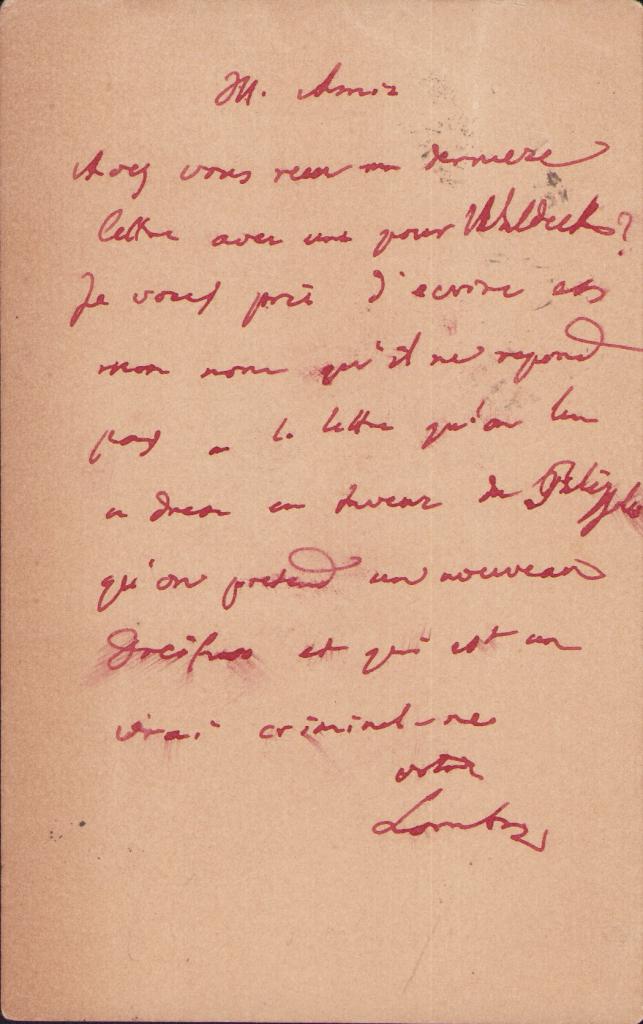 M. Amis
Avez vous recu ma derniere
lettre avec une pour Waldeck?
Je vous prie d'ecrire en
mon nom qu'il ne repond
pas a la lettre qu'on lui
a dress en faveur de
qu'on pretend un nouveau
Dreifuss et qui est un
vrai criminel-ne
votre